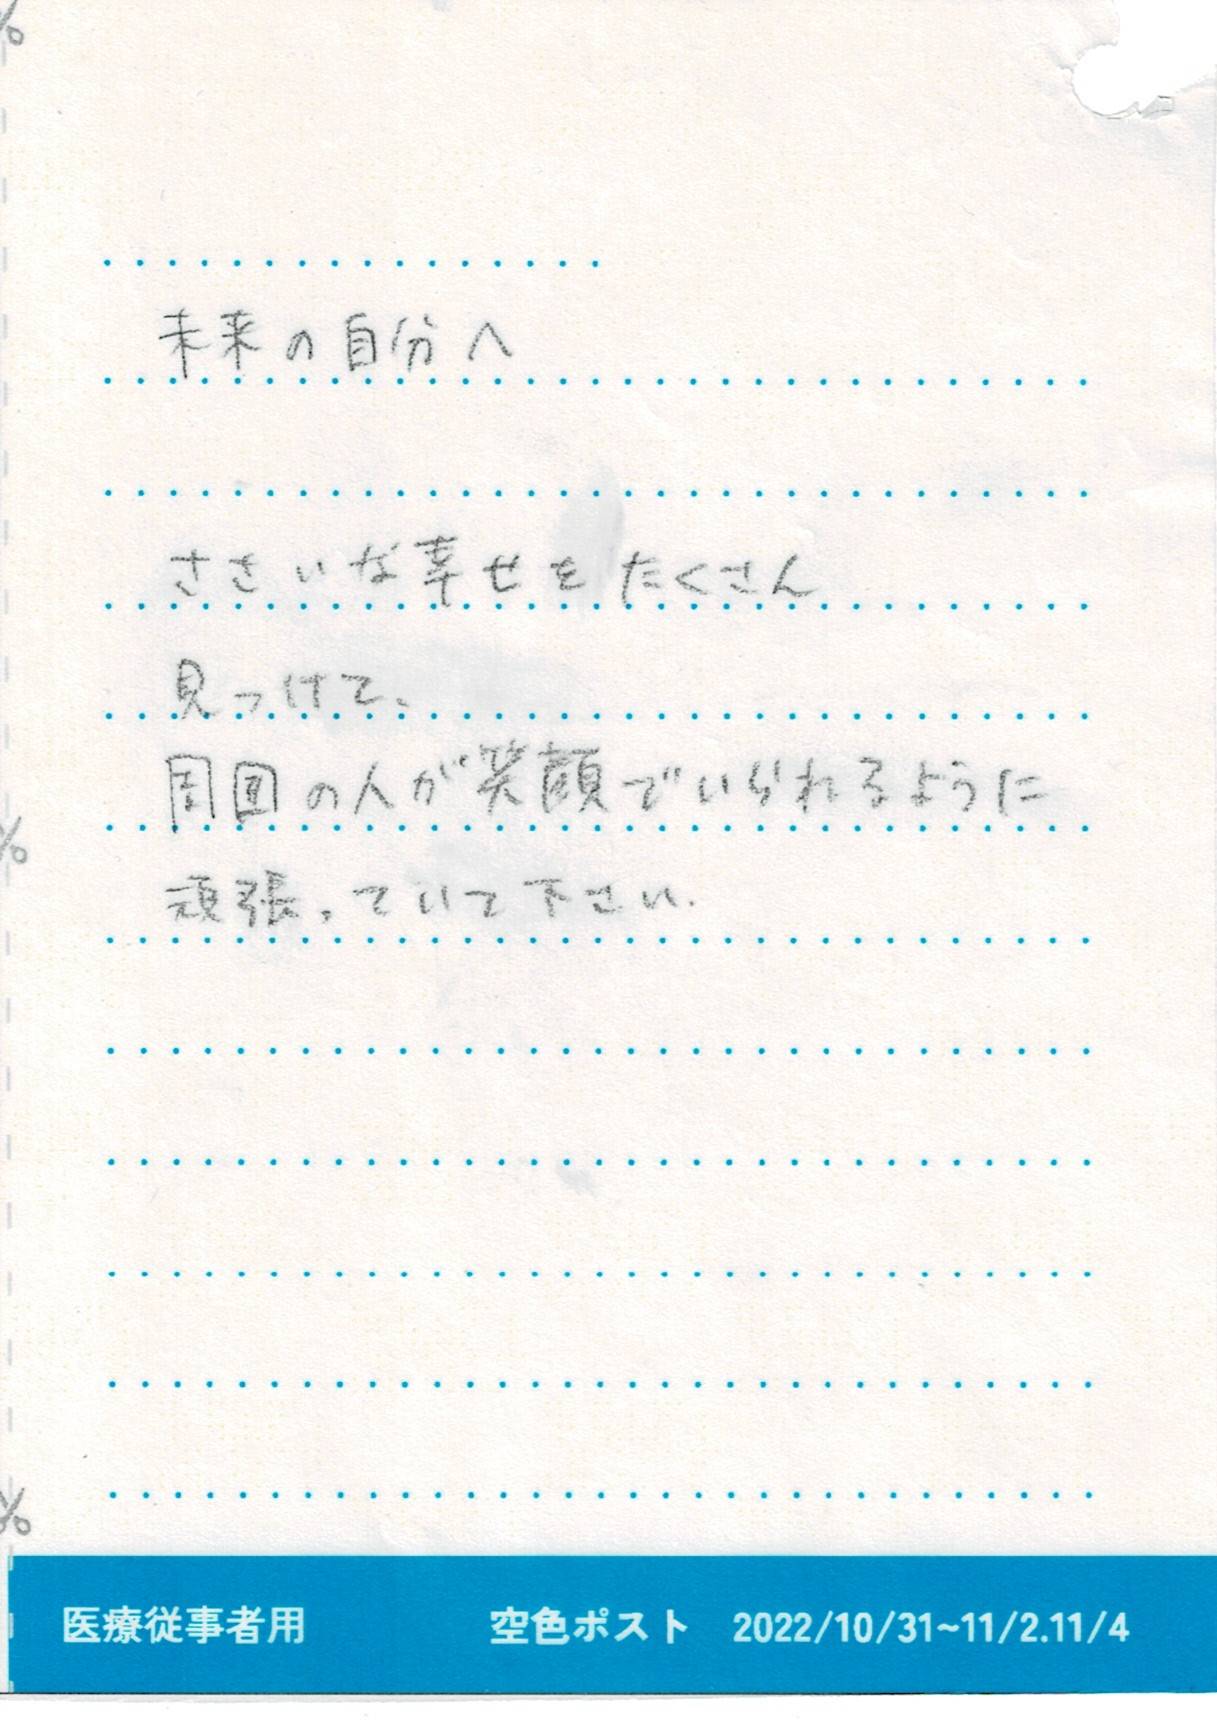 未来の自分へ
ささいな幸せをたくさん
見つけて、
周囲の人が笑顔でいられるように
頑張っていて下さい.
医療従事者用 空色ポスト 2022/10/31~11/2.11/4